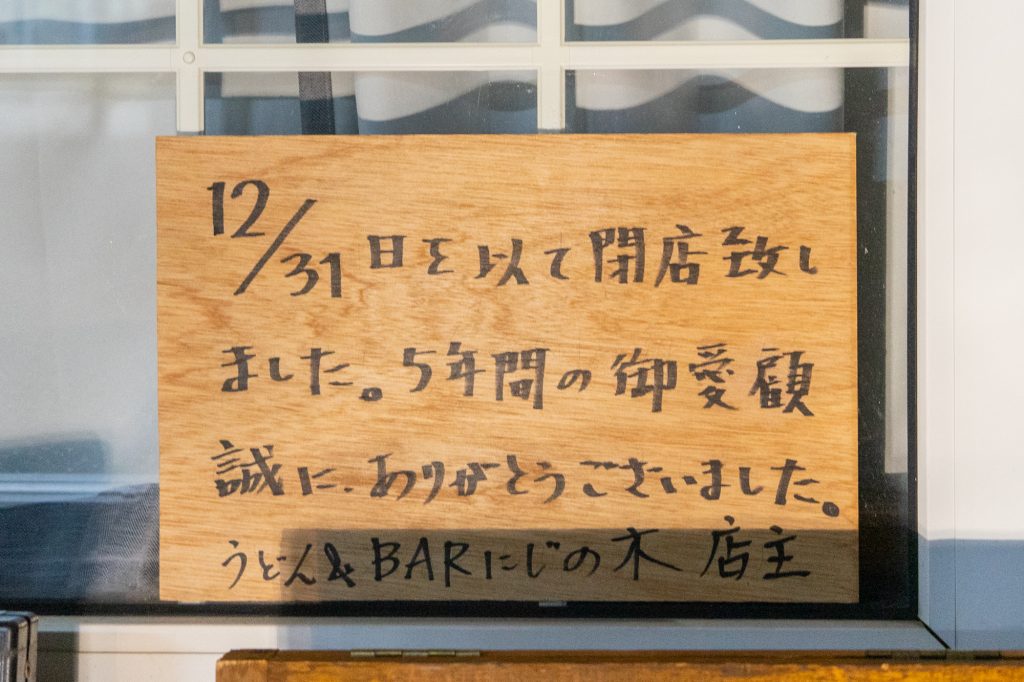 12/31日を以て閉店致し
ました。5年間の御愛顧
誠に、ありがとうございました。
うどん&BARにじの木 店主